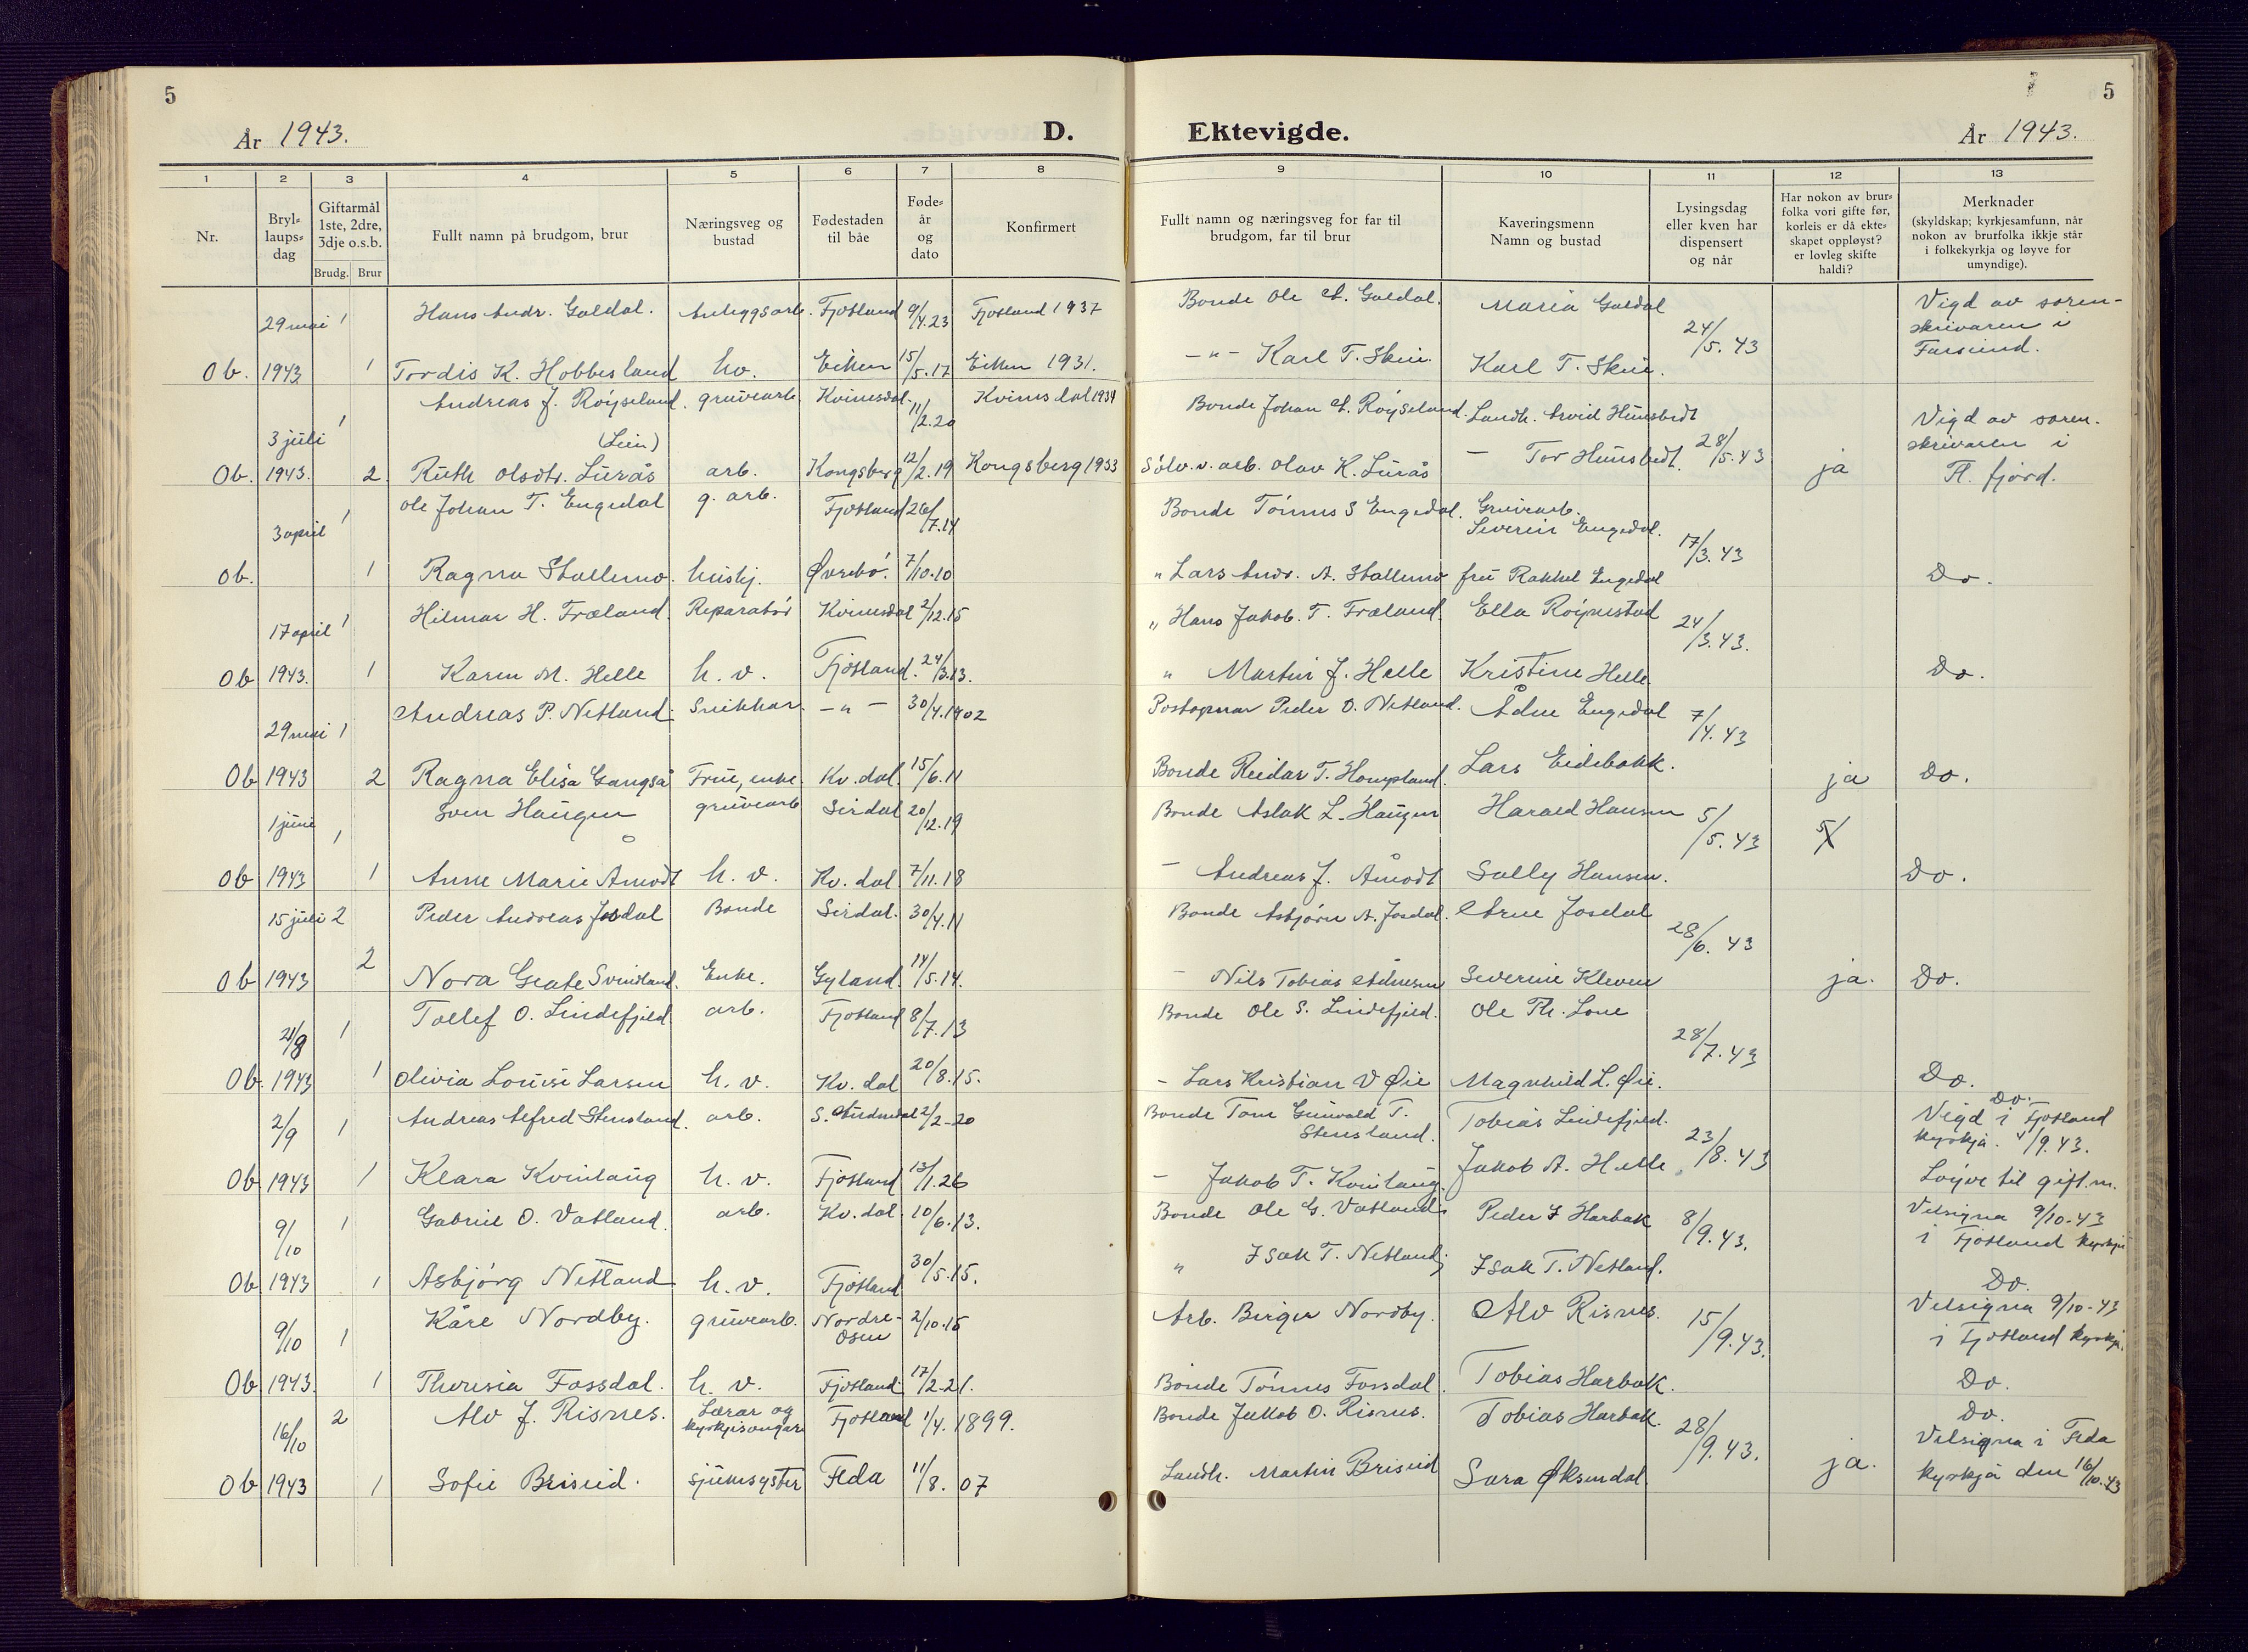 5
År 1943.
D.
Ektevigde.
År 1943.
5
1 2 3 4 5 6 7 8 9 10 11 12 13
Nr.
Bryl=
laups=
dag
Giftarmål
1ste, 2dre,
3dje o.s.b.
Brudg. Brur
Fullt namn på brudgom, brur
Næringsveg og
bustad
Fødestaden
til båe
Føde=
år
og
dato
Konfirmert
Fullt namn og næringsveg for far til
brudgom, far til brur
Kaveringsmenn
Namn og bustad
Lysingsdag
eller kven har
dispensert
og når
Har nokon av brur=
folka vori gifte før,
korleis er då ekte=
skapet oppløyst?
er lovleg skifte
haldi?
Merknader
(skyldskap; kyrkjesamfunn, når
nokon av brurfolka ikkje står
i folkekyrkja og løyve for
umyndige).
29 mai 1 Hans Andr. Galdal. Anleggsarb. Fjotland 9/4.23 Fjotland 1937 Bonde Ole A. Galdal. Maria Galdal 24/5.43 Vigd av soren-
skrivaren i
Ob. 1943 1 Tordis K. Hobbesland hv. Eiken 15/5.17 Eiken 1931. -"- Karl T. Skeie. Karl T. Skeie. Farsund.
3 juli 1 Andreas J. Røyseland. gruvearb. Kvinesdal. 11/2.20 Kvinesdal 1934 Bonde Johan A. Røyseland. Landh. Arvid Hunsbedt 28/5.43 Vigd av soren-
(Lien) skrivaren i
Ob. 1943. 2 Ruth Olsdtr. Lurås arb. Kongsberg 12/2.19 Kongsberg 1933 Sølv.v. arb. Olav K. Lurås - Tor Hunsbedt. ja Fl. fjord.
3 april 1 Ole Johan T. Engedal g. arb. Fjotland 26/7.14 Bonde Tønnes S Engedal. Gruvearb.
Severin Engedal. 17/3.43
Ob. 1 Ragna Stallemo. hushj. Øvrebø. 7/10.10 " Lars Andr. A. Stallemo fru Rakkel Engedal Do.
17 april 1 Hilmar H. Fræland. Reparatør Kvinesdal 2/12.15 " Hans Jakob. T. Fræland. Ella Røynestad 24/3.43.
Ob 1943. 1 Karen M. Helle h. v. Fjotland. 24/3.13. " Martin J. Helle Kristine Helle. Do.
29 mai 1 Andreas P. Netland. Snikkar. -"- 30/4.1902 Postopnar Peder O. Netland. Ådne Engedal 7/4.43
Ob 1943 2 Ragna Elisa Gangså Frue, enke. Kv. dal. 15/6.11 Bonde Reidar T. Hompland. Lars Eidebakk. ja Do.
1 juni 1 Sven Haugen gruvearb Sirdal 20/12.19 Bonde Aslak L. Haugen Harald Hansen 5/5.43
Ob 1943 1 Anne Marie Åmodt h. v. Kv. dal 7/11.18 - Andreas J. Åmodt Sally Hansen. Do.
15 juli 2 Peder Andreas Josdal Bonde Sirdal. 30/4.11 Bonde Asbjørn A. Josdal. Arne Josdal 28/6.43
Ob 1943 2 Nora Geate Svindland. Enke. Gyland. 14/5.14. - Nils Tobias Ådnesen Severine Kleven ja. Do.
21/8 1 Tollef O. Lindefjeld. arb. Fjotland 8/7.13 Bonde Ole S. Lindefjeld. Ole Th. Lone 28/7.43
Ob. 1943 1 Olivia Louise Larsen h. v. Kv. dal 20/8.15. - Lars Kristian V Øie Magnhild L. Øie. Do.
2/9 1 Andreas Alfred Stensland. arb. S. Audnedal 2/2-20 Bonde Tom Grunvald T.
Stensland. Tobias Lindefjeld. 23/8.43 Do.
Vigd i Fjotland
kyrkja. 4/9.43.
Ob. 1943 1 Klara Kvinlaug h. v. Fjotland 13/1.26 - Jakob T. Kvinlaug. Jakob A. Helle. Løyve til gift.m.
9/10 1 Gabriel O. Vatland. arb. Kv. dal. 10/6.13. Bonde Ole G. Vatland. Peder J Harbak 8/9.43. Velsigna 9/10-43
i Fjotland kyrkje
Ob 1943 1 Asbjørg Netland h. v. Fjotland 30/5.15. " Isak T. Netland, Isak T. Netland. Do.
9/10 1 Kåre Nordby. gruvearb. Nordre-
Osen 2/10.15 Arb. Birger Nordby. Alv Risnes. 15/9.43. Velsigna 9/10-43
i Fjotland kyrkje.
Ob 1943. 1 Theresia Fossdal. h. v. Fjotland. 17/2.21. Bonde Tønnes Fossdal. Tobias Harbak. Do.
16/10 2 Alv J. Risnes. Lærar og
kyrkjesongar Fjotland 1/4.1899. Bonde Jakob O. Risnes. Tobias Harbak. 28/9.43. Do.
Velsigna i Feda
Ob 1943 1 Sofie Briseid. sjukesyster Feda 11/8.07 Landh. Martin Briseid Sara Øksendal. ja. kyrkja den 16/10.43